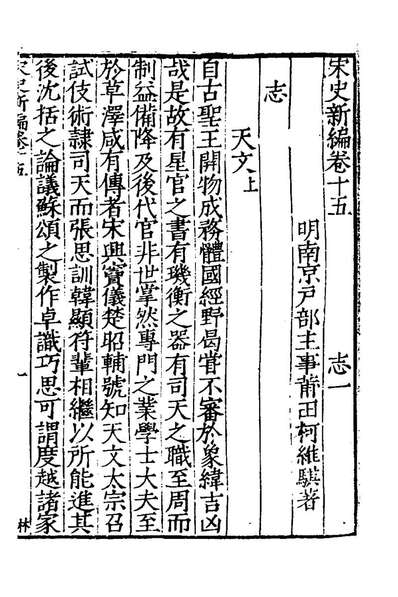 宋史新編卷十五　志一
明南京戸部主事莆田柯維騏著
志
天文上
自古聖王開物成務體國經野曷嘗不審於象緯吉凶
哉是故有星官之書有璣衡之器有司天之職至周而
制益備降及後代官非世掌然專門之業學士大夫至
於草澤咸有傳者宋興竇儀楚昭輔號知天文太宗召
試伎術隷司天而張思訓韓顯符輩相繼以所能進其
後沈括之論議蘇頌之製作卓識巧思可謂度越諸家
宋史新編卷十五
一
林